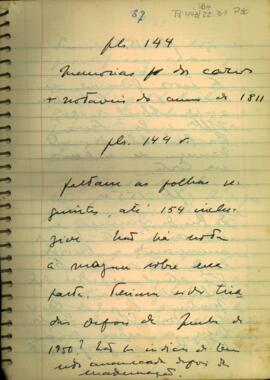 87
fls. 144
Memorias dos casos
+ notaveis do anno de 1811
fls. 144 v.
faltam as folhas se-
guintes, até 154 inclu-
sive. Não há nota
à margem sobre esta
parte. Teriam sido tira-
das depois de Junho de
1950? Não há indicio de tem
sido arrancadas depois da
encadernação